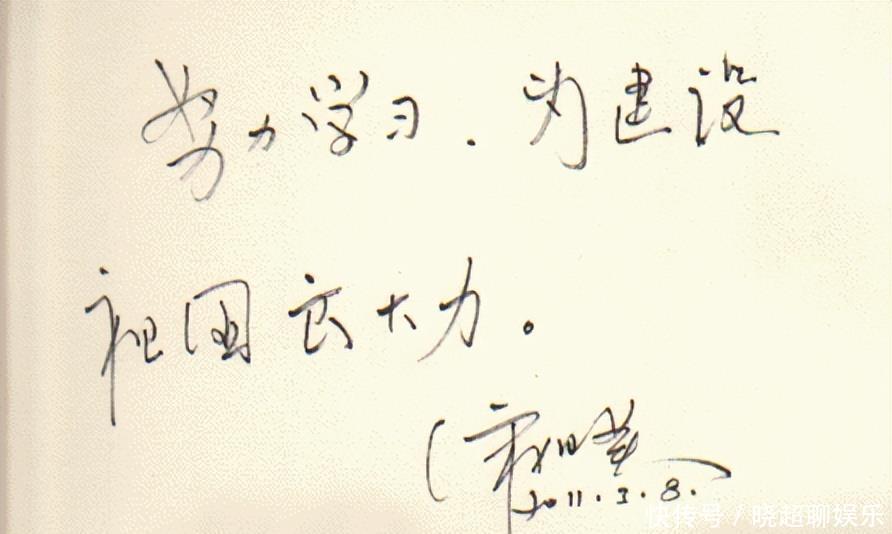 努力学习.为建设
祖国大力。
2011.3.8.
快传号 / 晓超聊娱乐